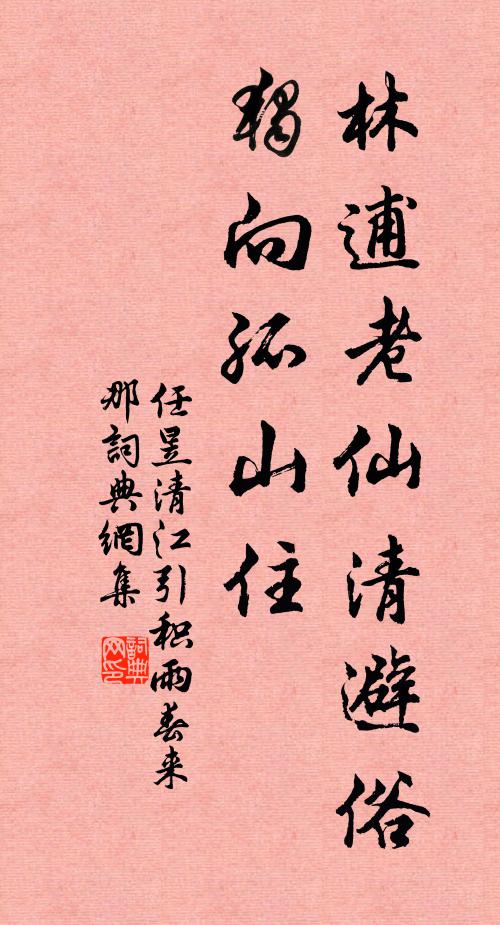 林逋老仙清避俗
獨向孤山住
任昱清江引积雨春来
那詞典網集
詞典
网印